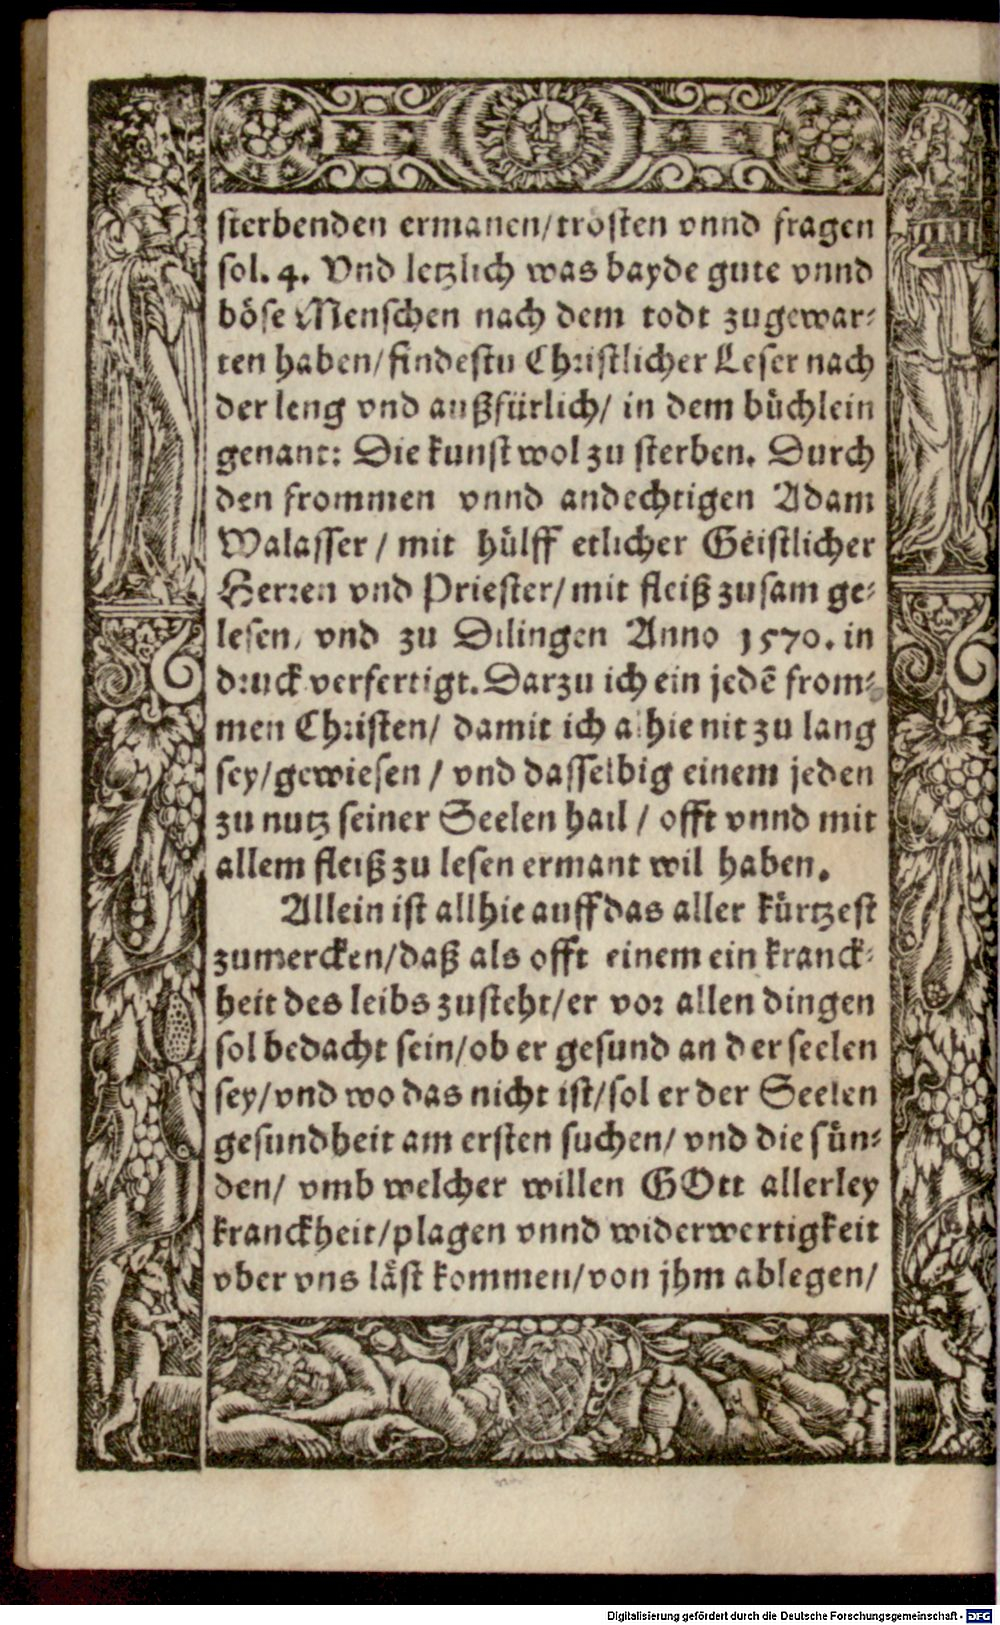 sterbenden ermanen/trösten vnnd fragen
sol. 4. Vnd letzlich was bayde gute vnnd
böse Menschen nach dem todt zugewar⸗
ten haben/findestu Christlicher Leser nach
der leng vnd außfürlich/ in dem büchlein
genant: Die kunst wol zu sterben. Durch
den frommen vnnd andechtigen Adam
Walasser / mit hülff etlicher Geistlicher
Herren vnd Priester/mit fleiß zusam ge⸗
lesen, vnd zu Dilingen Anno 1570. in
druck verfertigt. Darzu ich ein jedē from⸗
men Christen/ damit ich alhie nit zu lang
sey/gewiesen / vnd dasselbig einem jeden
zu nutz seiner Seelen hail / offt vnnd mit
allem fleiß zu lesen ermant wil haben.
Allein ist allhie auff das aller kürtzest
zumercken/daß als offt einem ein kranck⸗
heit des leibs zusteht/er vor allen dingen
sol bedacht sein/ob er gesund an der seelen
sey/vnd wo das nicht ist/sol er der Seelen
gesundheit am ersten suchen/ vnd die sün⸗
den/ vmb welcher willen GOtt allerley
kranckheit/plagen vnnd widerwertigkeit
vber vns läst kommen/von jhm ablegen/
Digitalisierung gefördert durch die Deutsche Forschungsgemeinschaft - DFG